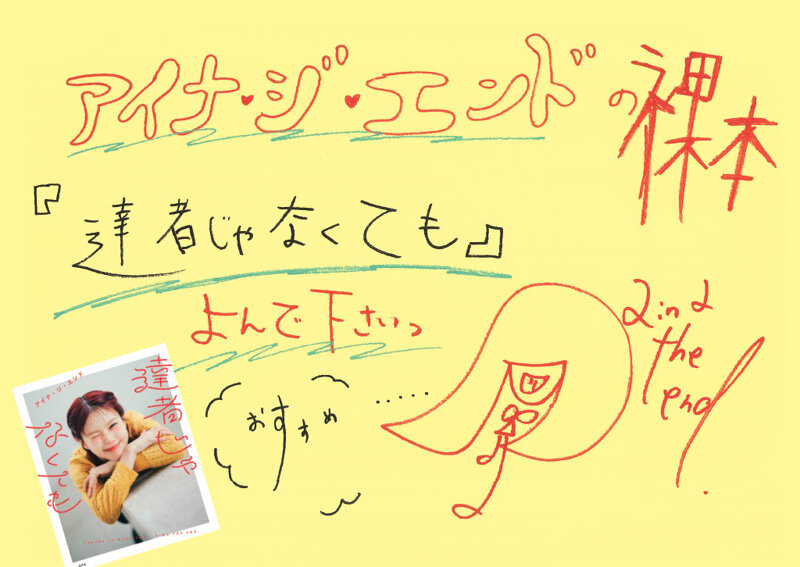 アイナ・ジ・エンドの裸本
『達者じゃなくても』
よんで下さいっ
おすすめ
.....
aina
the
end
アイナ・ジ・エンド
達者じゃ
なくても